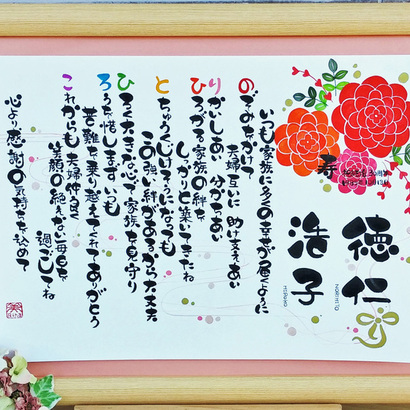 寿
徳仁
NORIHITO
浩子
HIROKO
いつも家族に多くの幸せが届くように
のぞみをかけて
夫婦互いに 助け支えあい
りかいしあい 分かちあい
ひろがる家族の絆を
しっかりと築いてきたね
とちゅうくじけそうになっても
この強い絆があるから大丈夫
ひろく大きな心で 家族を見守り
ろうを惜しまず いつも
苦難を乗り越えてくれてありがとう
これからも 夫婦仲良く
笑顔の絶えない毎日を
過ごしてね
心より感謝の気持ちを込めて